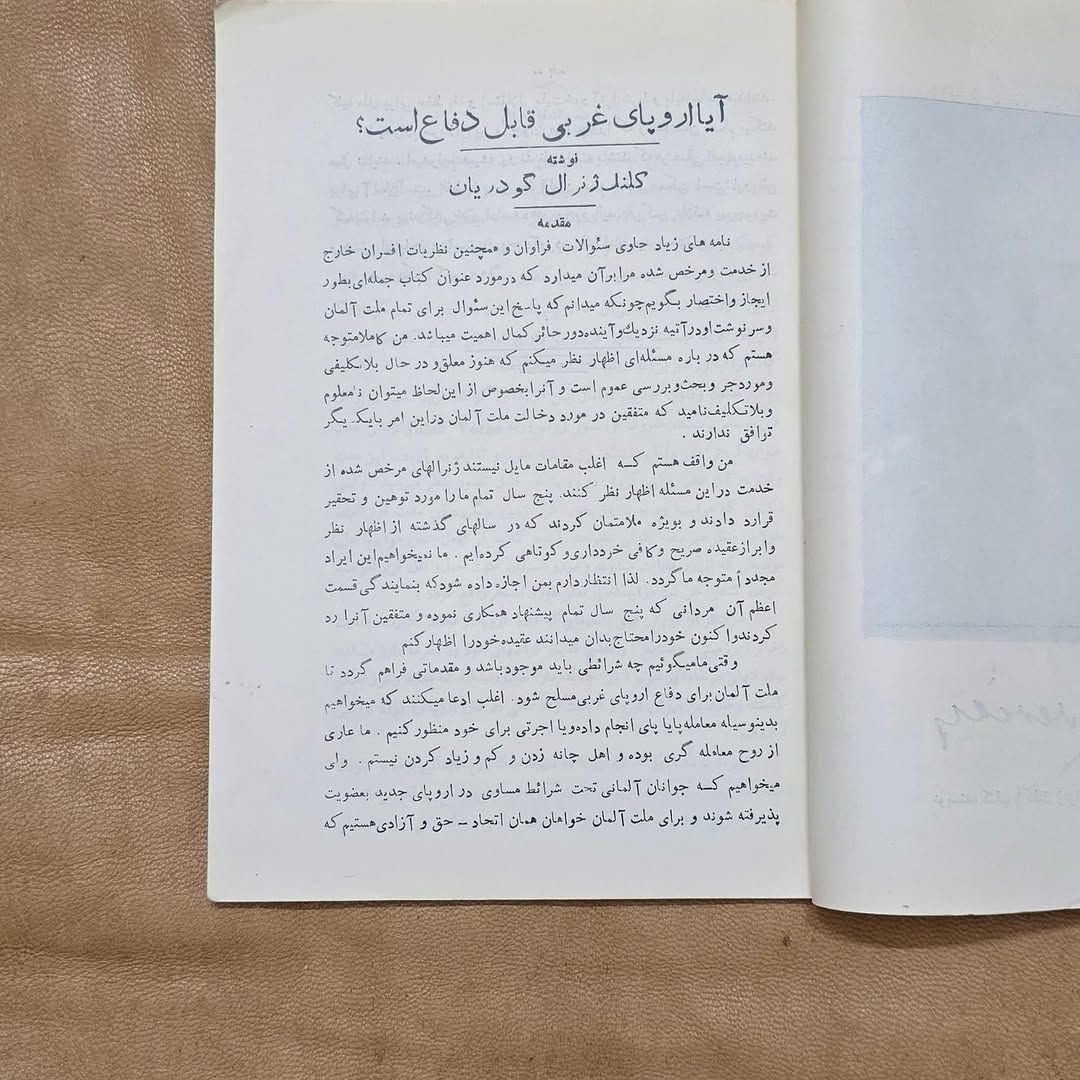 آیا اروپای غربی قابل دفاع است؟
نوشته
کلنل ژنرال گودریان
مقدمه
نامه های زیاد حاوی سئوالات فراوان و همچنین نظریات افسران خارج
از خدمت و مرخص شده مرا برآن میدارد که در مورد عنوان کتاب جمله‌ای بطور
ایجاز و اختصار بگویم چونکه میدانم که پاسخ این سئوال برای تمام ملت آلمان
و سرنوشت او در آتیه نزدیك و آینده دور حائز کمال اهمیت میباشد. من کاملا متوجه
هستم که در باره مسئله‌ای اظهار نظر میکنم که هنوز معلق و در حال بلاتکلیفی
و مورد جر و بحث و بررسی عموم است و آنرا بخصوص از این لحاظ میتوان نامعلوم
و بلاتکلیف نامید که متفقین در مورد دخالت ملت آلمان در این امر بایکدیگر
توافق ندارند .
من واقف هستم کـه اغلب مقامات مایل نیستند ژنرالهای مرخص شده از
خدمت در این مسئله اظهار نظر کنند. پنج سال تمام ما را مورد توهین و تحقیر
قرارد دادند و بویژه ملامتمان کردند که در سالهای گذشته از اظهار نظر
و ابراز عقیده صریح و کافی خودداری و کوتاهی کرده‌ایم . ما نمیخواهیم این ایراد
مجدداً متوجه ما گردد. لذا انتظار دارم بمن اجازه داده شود که بنمایندگی قسمت
اعظم آن مردانی که پنج سال تمام پیشنهاد همکاری نموده و متفقین آنرا رد
کردند و اکنون خود را محتاج بدان میدانند عقیده خود را اظهار کنم
وقتی ما میگوئیم چه شرائطی باید موجود باشد و مقدماتی فراهم گردد تا
ملت آلمان برای دفاع اروپای غربی مسلح شود. اغلب ادعا میکنند که میخواهیم
بدینوسیله معامله پایا پای انجام داده و یا اجرتی برای خود منظور کنیم . ما عاری
از روح معامله گری بوده و اهل چانه زدن و کم و زیاد کردن نیستم . ولی
میخواهیم کـه جوانان آلمانی تحت شرائط مساوی در اروپای جدید بعضویت
پذیرفته شوند و برای ملت آلمان خواهان همان اتحاد ـ حق و آزادی هستیم که